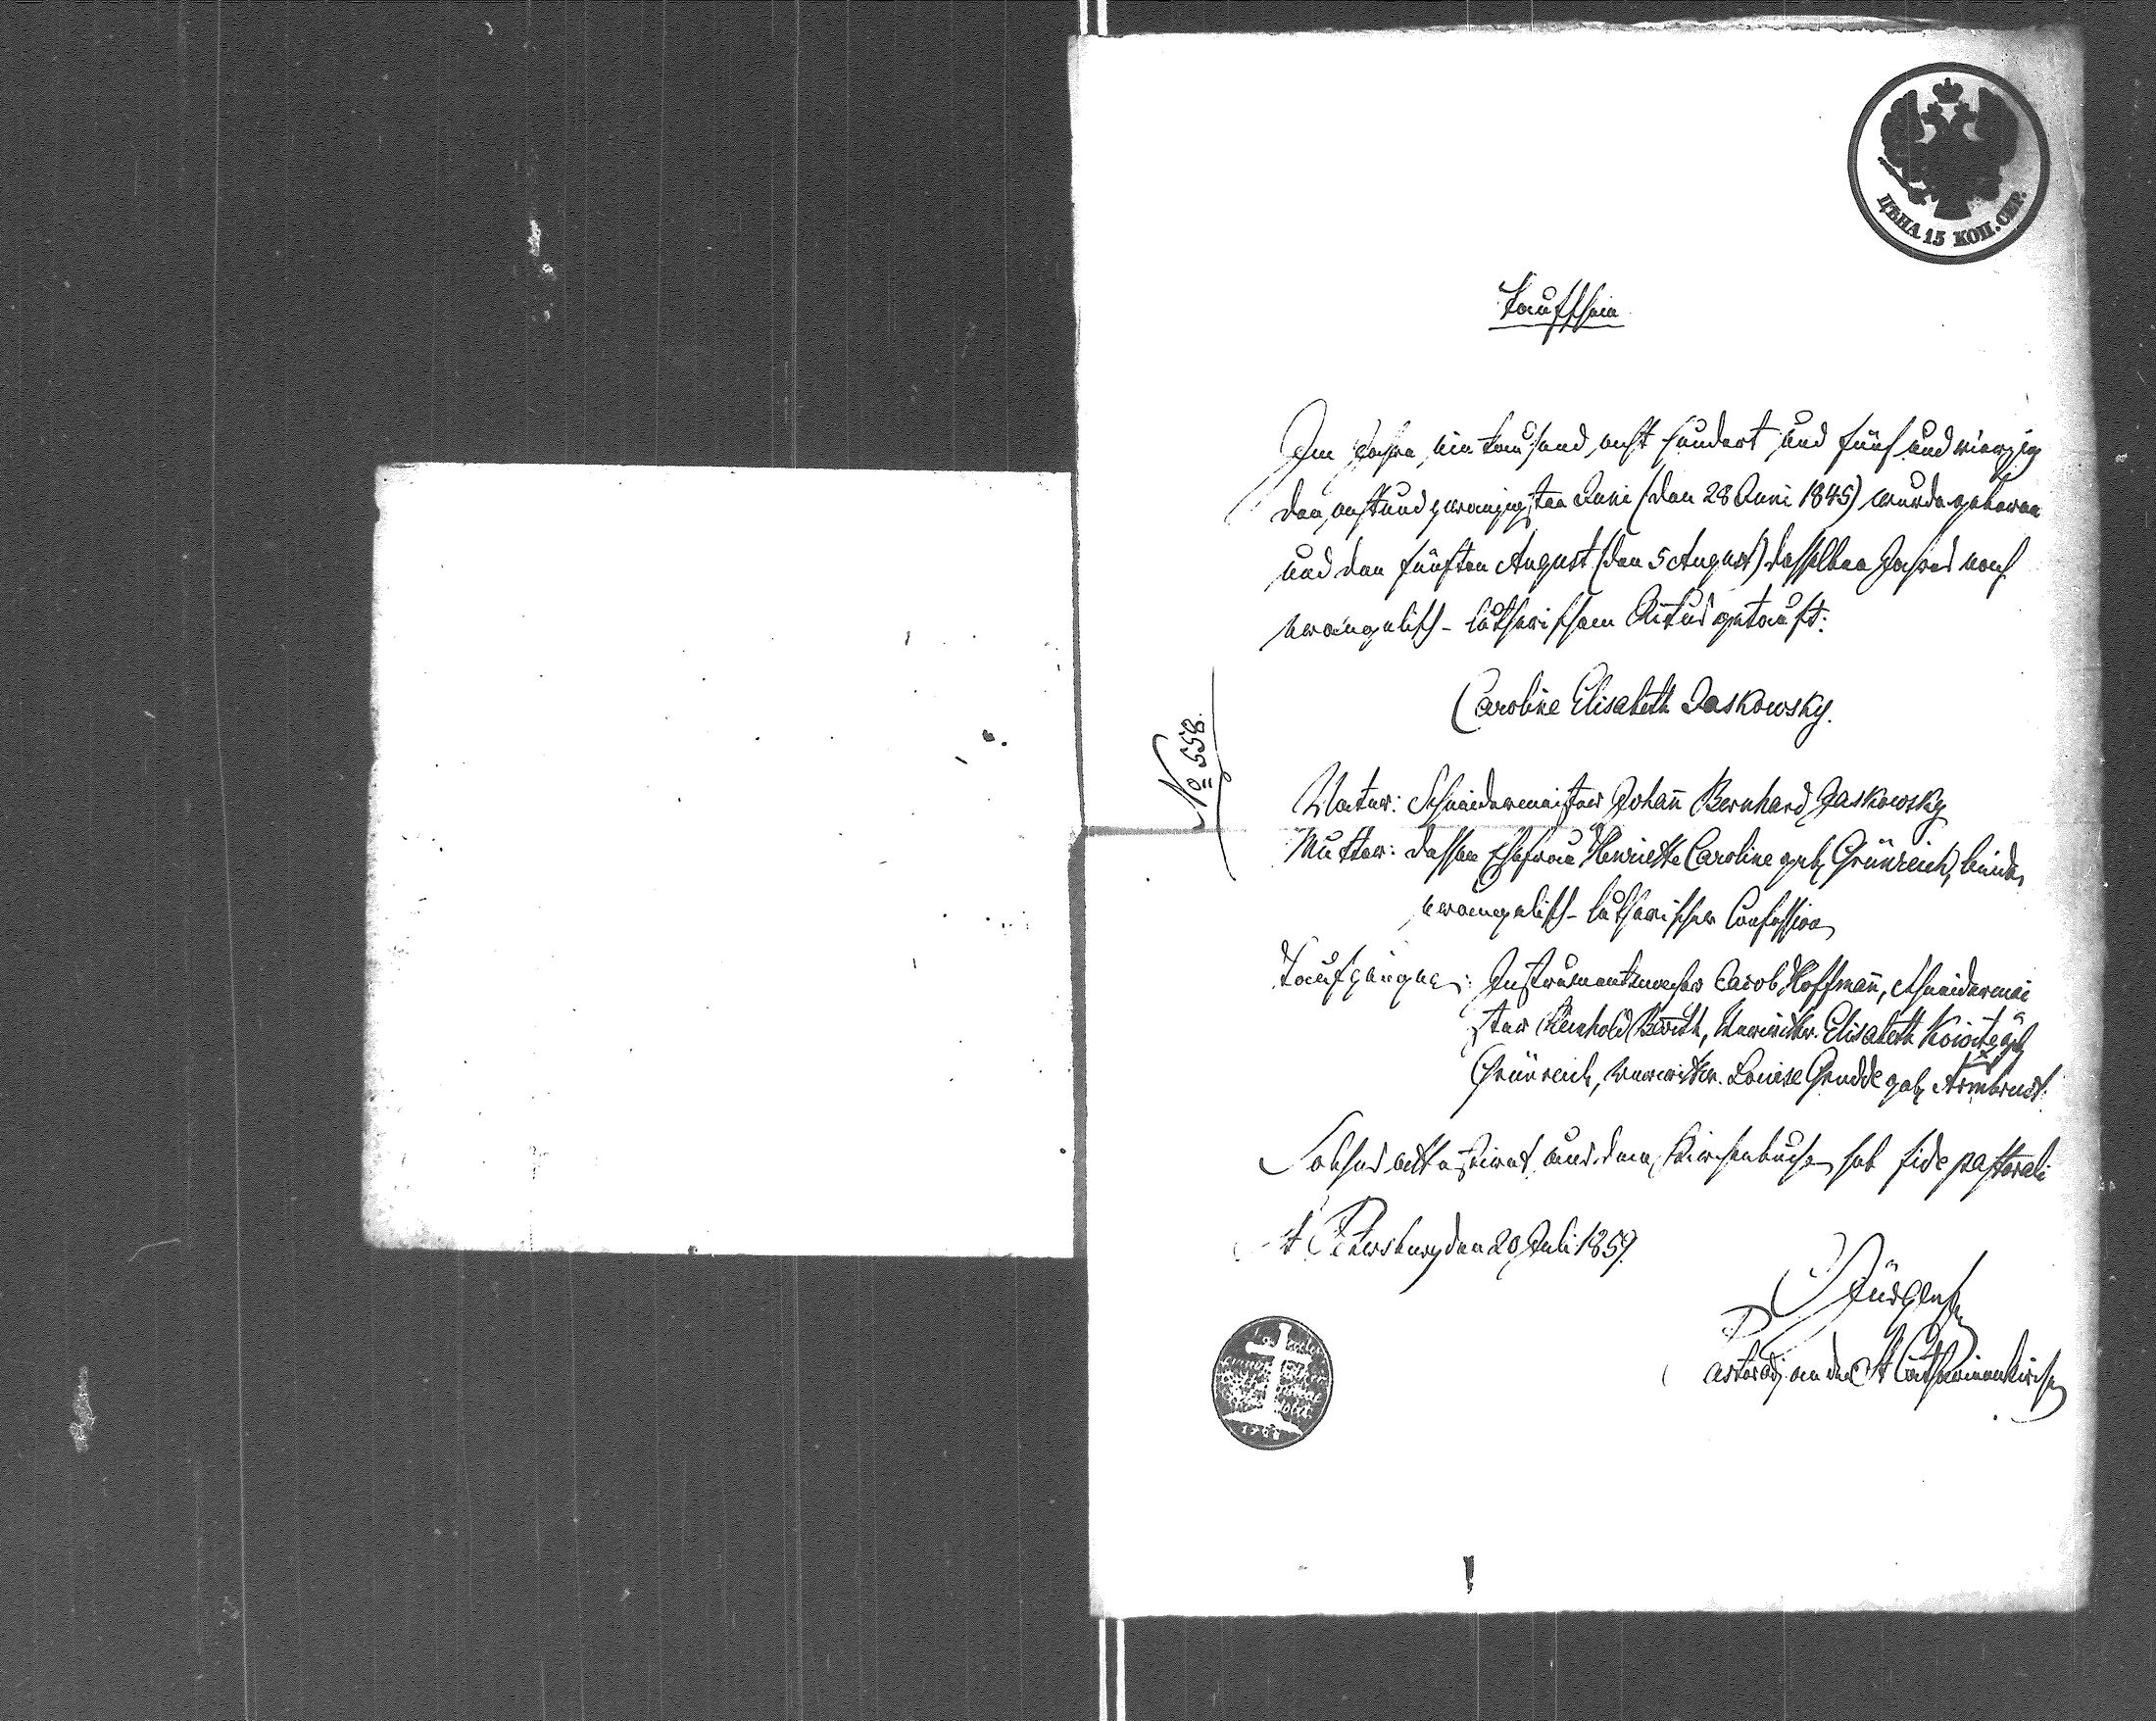 ЦѢНА 15 КОП. СЕР.
Taufschein
Im Jahre ein tausend acht hundert und fünf und vierzig
den acht und zwanzigsten Juni (den 28 Juni 1845) wurde geboren
und den fünften August (den 5 August) desselben Jahres nach
evangelisch-lutherischem Ritus getauft:
Caroline Elisabeth Jaskowsky.
No 558.
Vater: Schneidermeister Johañ Bernhard Jaskowsky
Mutter: dessen Ehefrau Henriette Caroline geb. Grünreich, beide
evangelisch-lutherischer Confession
Taufzeugen: Instrumentmacher Jacob Hoffmañ, Schneidermei
ster Reinhold, Verwittw. Elisabeth geb
Grünreich, verwittw. Louise Grudde geb. Armbrust.
Solches attestirt aus dem Kirchenbuche sub fide pastorali
St Petersburg den 20 Juli 1859.
Pastor adj. an der St Catharinenkirche